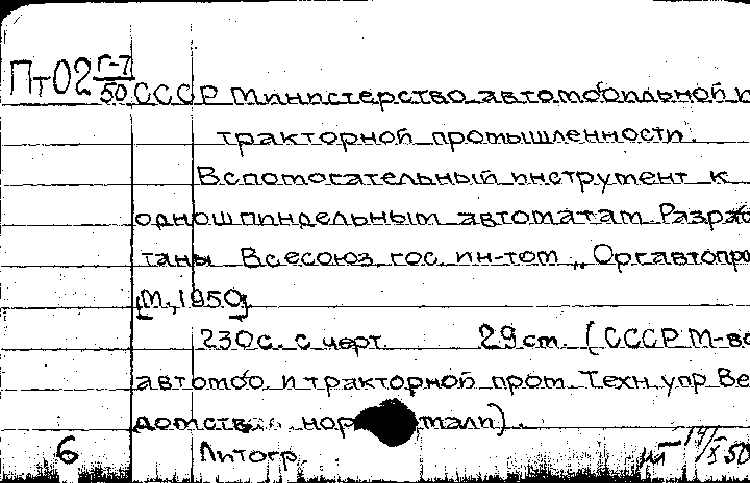 Пт02 Г-7/50 СССР Министерство автомобильной и
тракторной промышленности.
Вспомогательный инструмент к
одношпиндельным автоматам. Разрабо
таны Всесоюз. гос. ин-том „Оргавтопро
[М., 1950].
230с. с черт. 29 см. (СССР М-во
автомоб. и тракторной пром. Техн. упр. Ве
домств
6 Литогр. 14/X 50